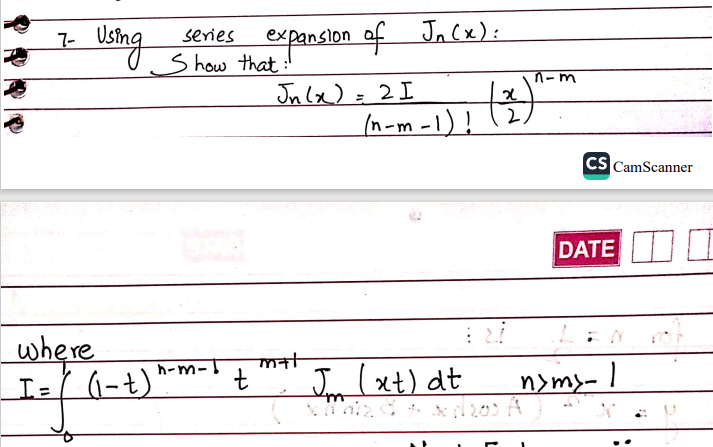 7- Using series expansion of Jn(x):
Show that:
Jn(x) = 2I / (n-m-1)! (x/2)^n-m
CS CamScanner
DATE
where
I = ∫₀¹ (1-t)^n-m-1 t^m+1 Jm (xt) dt n>m>-1